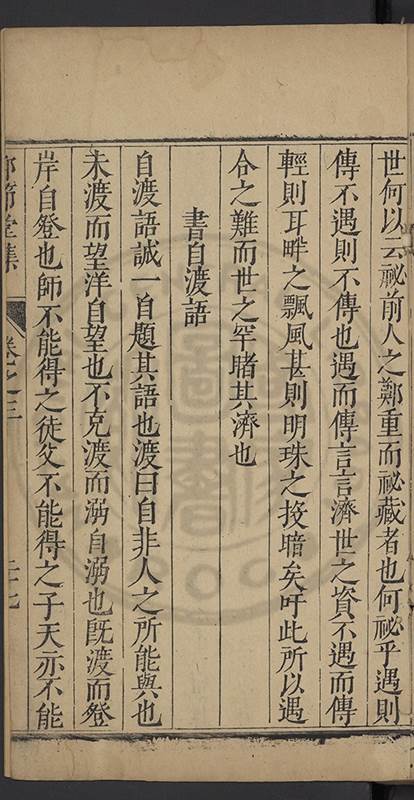 世何以云祕前人之鄭重而祕藏者也何祕乎遇則
傳不遇則不傳也遇而傳言言濟世之資不遇而傳
輕則耳畔之飄風甚則明珠之投暗矣吁此所以遇
合之難而世之罕睹其濟也
書自渡語
自渡語誠一自題其語也渡曰自非人之所能與也
未渡而望洋自望也不克渡而溺自溺也旣渡而登
岸自登也師不能得之徒父不能得之子天亦不能
節堂集
卷之三
二十七